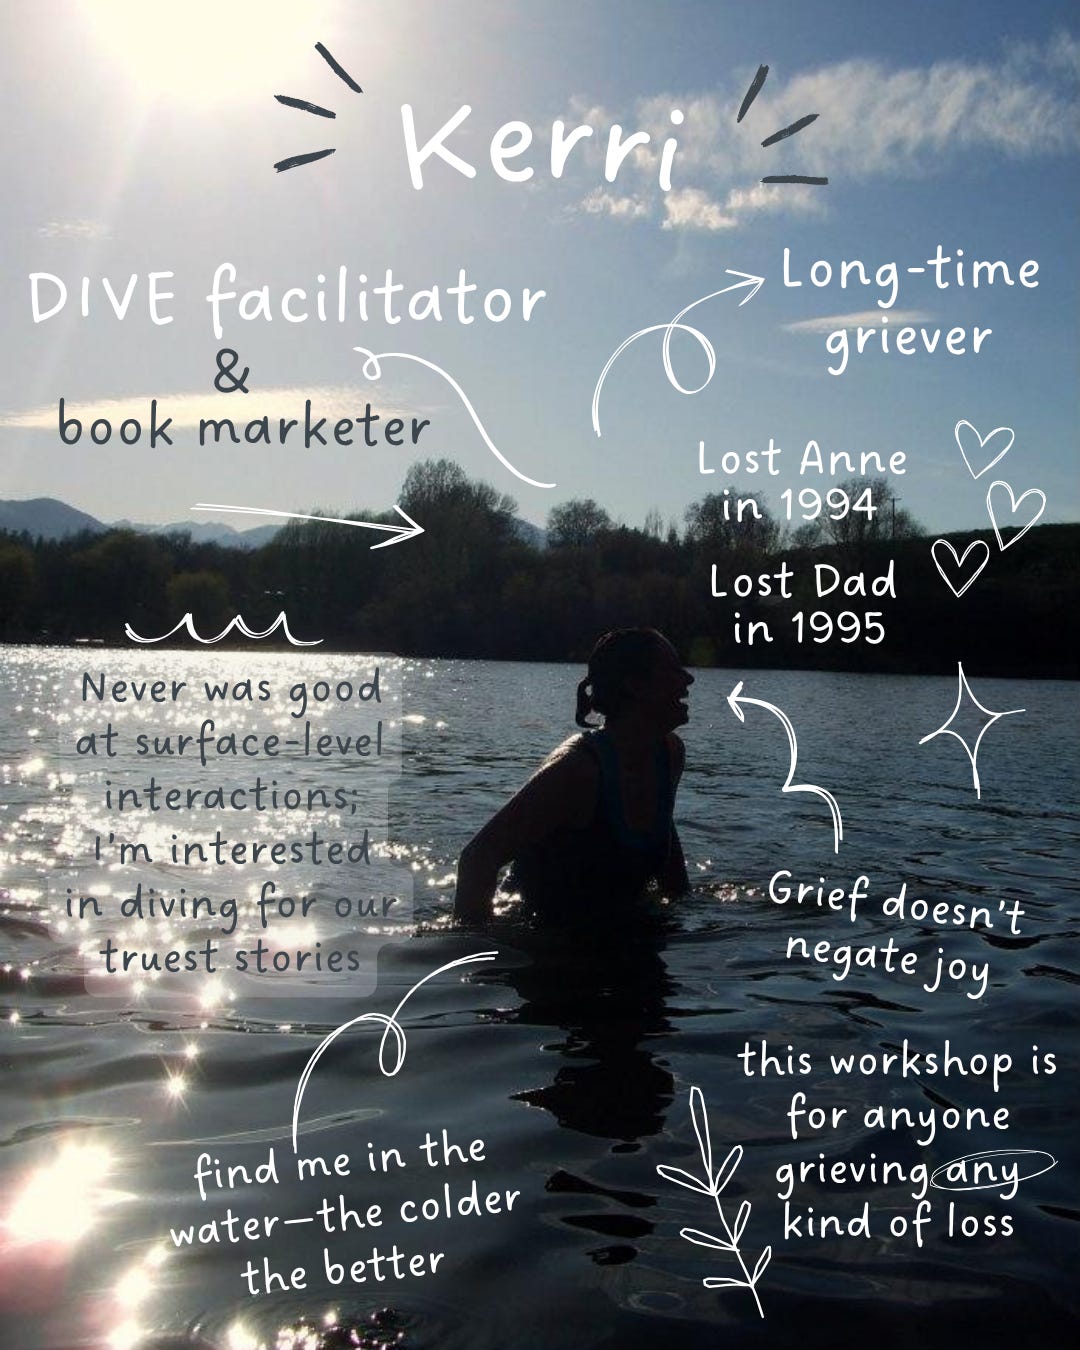 Kerri
DIVE facilitator
&
book marketer
Long-time
griever
Lost Anne
in 1994
Lost Dad
in 1995
Never was good
at surface-level
interactions;
I'm interested
in diving for our
truest stories
Grief doesn't
negate joy
this workshop is
for anyone
grieving any
kind of loss
find me in the
water—the colder
the better